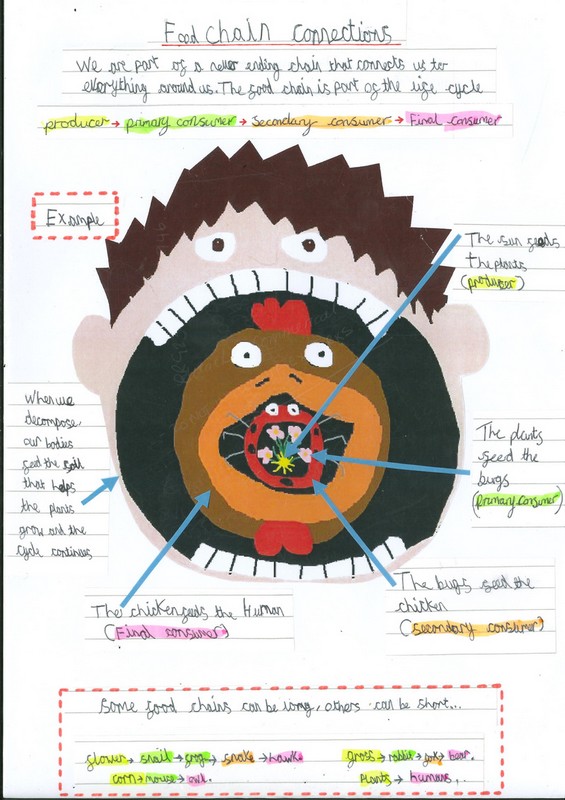 Food chain connections
We are part of a never ending chain that connects us to
everything around us. The food chain is part of the life cycle
producer → primary consumer → Secondary consumer → Final consumer
Example
The sun feeds
the plants
(producer)
When we
decompose,
our bodies
feed the soil
that helps
the plants
grow and the
cycle continues
The plants
feed the
bugs
(primary consumer)
The bugs feed the
chicken
(secondary consumer)
The chicken feeds the Human
(Final consumer)
Some food chains can be long, others can be short...
flower → snail → frog → snake → hawk
grass → rabbit → fox → bear.
corn → mouse → owl.
Plants → humans...